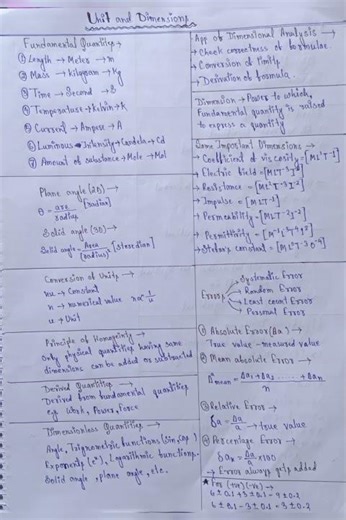 Unit and Dimensions
Fundamental Quantities →
① Length → Meter → m
② Mass → Kilogram → Kg
③ Time → Second → S
④ Temperature → Kelvin → K
⑤ Current → Ampere → A
⑥ Luminous Intensity → Candela → Cd
⑦ Amount of substance → Mole → Mol
Plane angle (2D) →
θ = arc/radius [radian]
Solid angle (3D) →
Solid angle = Area/(radius)² [steradian]
Conversion of Units →
nu → Constant
n → numerical value n∝1/u
u → Unit
Principle of Homogeneity →
Only physical quantities having same
dimensions can be added or subtracted
Derived Quantities →
Derived from fundamental quantities
eg Work, Power, Force
Dimensionless Quantities →
Angle, Trignometric functions (sin, cos)
Exponents (eˣ), Logarithmic functions
Solid angle, plane angle, etc.
App of Dimensional Analysis →
→ Check correctness of formulas.
→ Conversion of Units
→ Derivation of formula.
Dimension → Power to which,
Fundamental quantity is raised
to express a quantity
Some Important Dimensions →
→ Coefficient of viscosity = [ML⁻¹T⁻¹]
→ Electric field =
→ Resistance =
→ Impulse = [MLT⁻¹]
→ Permeability =
→ Permittivity =
→ Stefan's constant =
Errors
Systematic Error
Random Error
Least count Error
Personal Error
① Absolute Error (Δa) →
True value - measured value
② Mean absolute Error →
Δa mean = Δa₁+Δa₂ ..... +Δan / n
③ Relative Error →
δa = Δa/a → true value
④ Percentage Error →
δa% = Δa/a ×100
→ Error always get added
★ For (+ve) (-ve) →
6 ± 0.1 + 3 ± 0.1 = 9 ± 0.2
6 ± 0.1 - 3 ± 0.1 = 3 ± 0.2